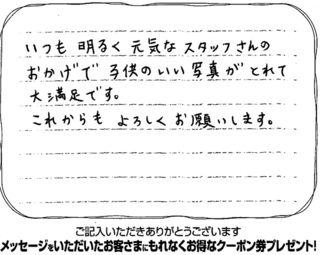 いつも 明るく 元気な スタッフさんの
おかげで 子供の いい 写真が とれて
大満足です。
これからも よろしく お願いします。
ご記入いただきありがとうございます
メッセージをいただいたお客さまにもれなくお得なクーポン券プレゼント!